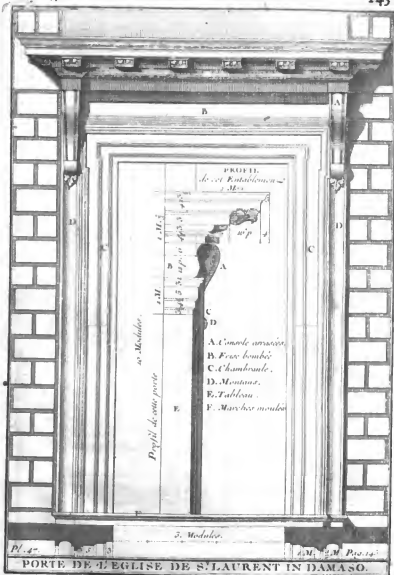 145
A
B
PROFIL
de cet Entablement
1 Mod.
A
B
C
D
D
D
C
C
E
12 Modules.
Profil de cette porte
A. Console arrasées.
B. Frise bombée
C. Chambranle.
D. Montans.
E. Tableau.
F. Marches moulées
5. Modules.
Pl. 47
Pag. 145
PORTE DE L'EGLISE DE St. LAURENT IN DAMASO.